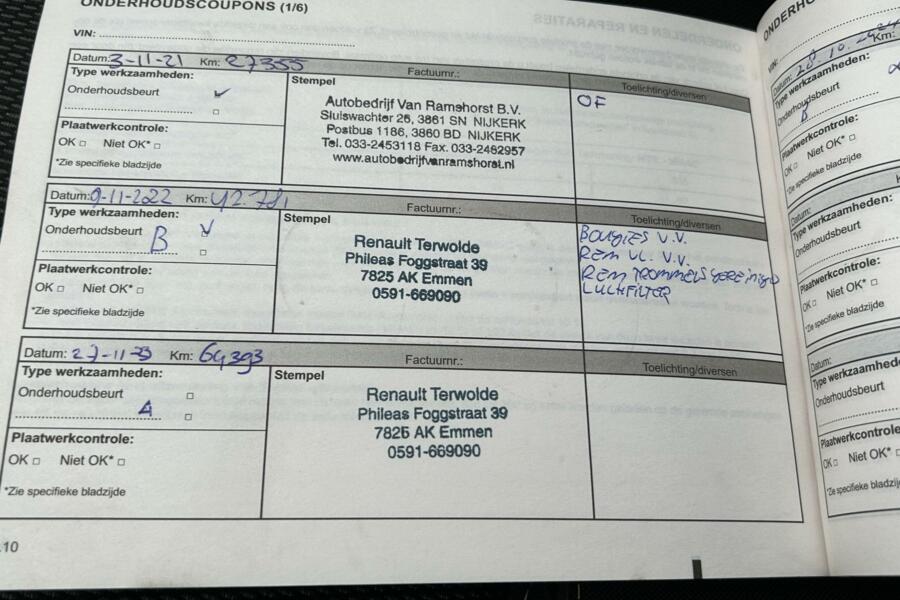 ONDERHOUDSCOUPONS (1/6)
VIN:
Datum: 3-11-21 Km: 27355 Factuurnr.:
Type werkzaamheden:
Onderhoudsbeurt ✓
Plaatwerkcontrole:
OK □ Niet OK* □
*Zie specifieke bladzijde
Stempel
Autobedrijf Van Ramshorst B.V.
Sluiswachter 26, 3861 SN NIJKERK
Postbus 1186, 3860 BD NIJKERK
Tel. 033-2453118 Fax. 033-2462957
www.autobedrijfvanramshorst.nl
Toelichting/diversen
OF
Datum: 9-11-2022 Km: 42.781 Factuurnr.:
Type werkzaamheden:
Onderhoudsbeurt ✓
B □
Plaatwerkcontrole:
OK □ Niet OK* □
*Zie specifieke bladzijde
Stempel
Renault Terwolde
Phileas Foggstraat 39
7825 AK Emmen
0591-669090
Toelichting/diversen
BOUGIES V.V.
REM VL. V.V.
REM TROMMELS GEREINIGD
LUCHFILTER
Datum: 27-11-23 Km: 64393 Factuurnr.:
Type werkzaamheden:
Onderhoudsbeurt □
A □
Plaatwerkcontrole:
OK □ Niet OK* □
*Zie specifieke bladzijde
Stempel
Renault Terwolde
Phileas Foggstraat 39
7825 AK Emmen
0591-669090
Toelichting/diversen
10
VIN:
Datum: 28.10.2024 Km:
Type werkzaamheden:
Onderhoudsbeurt
B
Plaatwerkcontrole:
OK □ Niet OK* □
*Zie specifieke bladzijde
Type werkzaamheden:
Onderhoudsbeurt
Plaatwerkcontrole:
OK □ Niet OK* □
*Zie specifieke bladzijde
Datum:
Type werkzaamheden:
Onderhoudsbeurt
Plaatwerkcontrole:
OK □ Niet OK* □
*Zie specifieke bladzijde